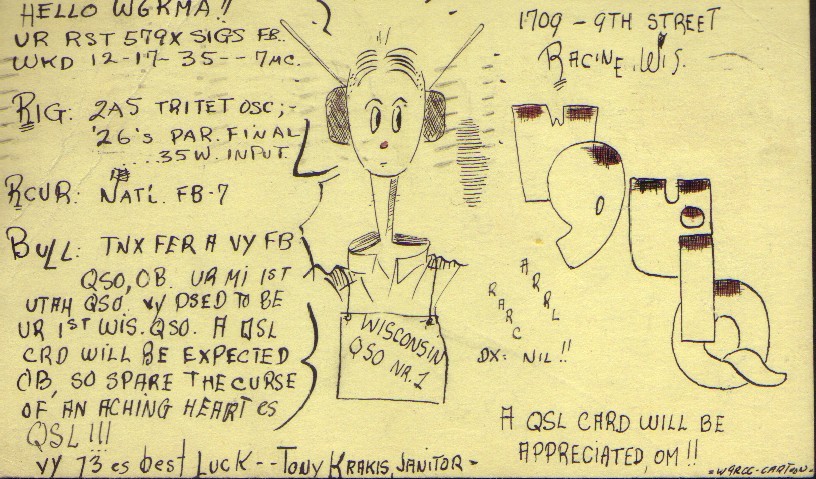 HELLO W6KMA!!
UR RST 579X SIGS FB.
WKD 12-17-35--7MC.
RIG: 2A5 TRITET OSC;-
'26's PAR. FINAL
....35W. INPUT.
RCUR: NAT'L. FB-7
BULL: TNX FER A VY FB
QSO, OB. UR MI 1ST
UTAH QSO. VY PSED TO BE
UR 1ST WIS. QSO. A QSL
CRD WILL BE EXPECTED
OB, SO SPARE THE CURSE
OF AN ACHING HEART es
QSL!!!
VY 73 es best LUCK--TONY KRAKIS, JANITOR-
WISCONSIN
QSO NR. 1
1709 - 9TH STREET
RACINE, WIS.
W9UIQ
ARRL
RARC
DX: NIL!!
A QSL CARD WILL BE
APPRECIATED, OM!!
-CARTOON-